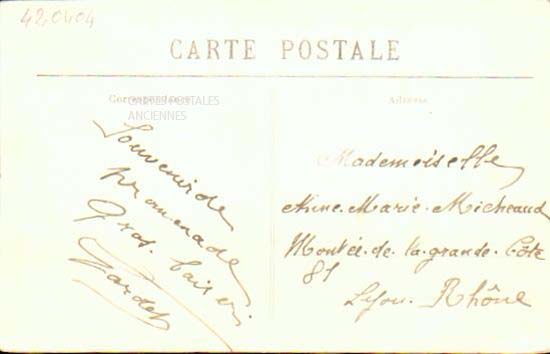 420404
CARTE POSTALE
Correspondance
Adresse
CARTES POSTALES
ANCIENNES
Souvenir de
promenade
Gros baiser
Mademoiselle
Anne-Marie-Micheaud
Montée-de-la-grande-Côte
81
Lyon-Rhône